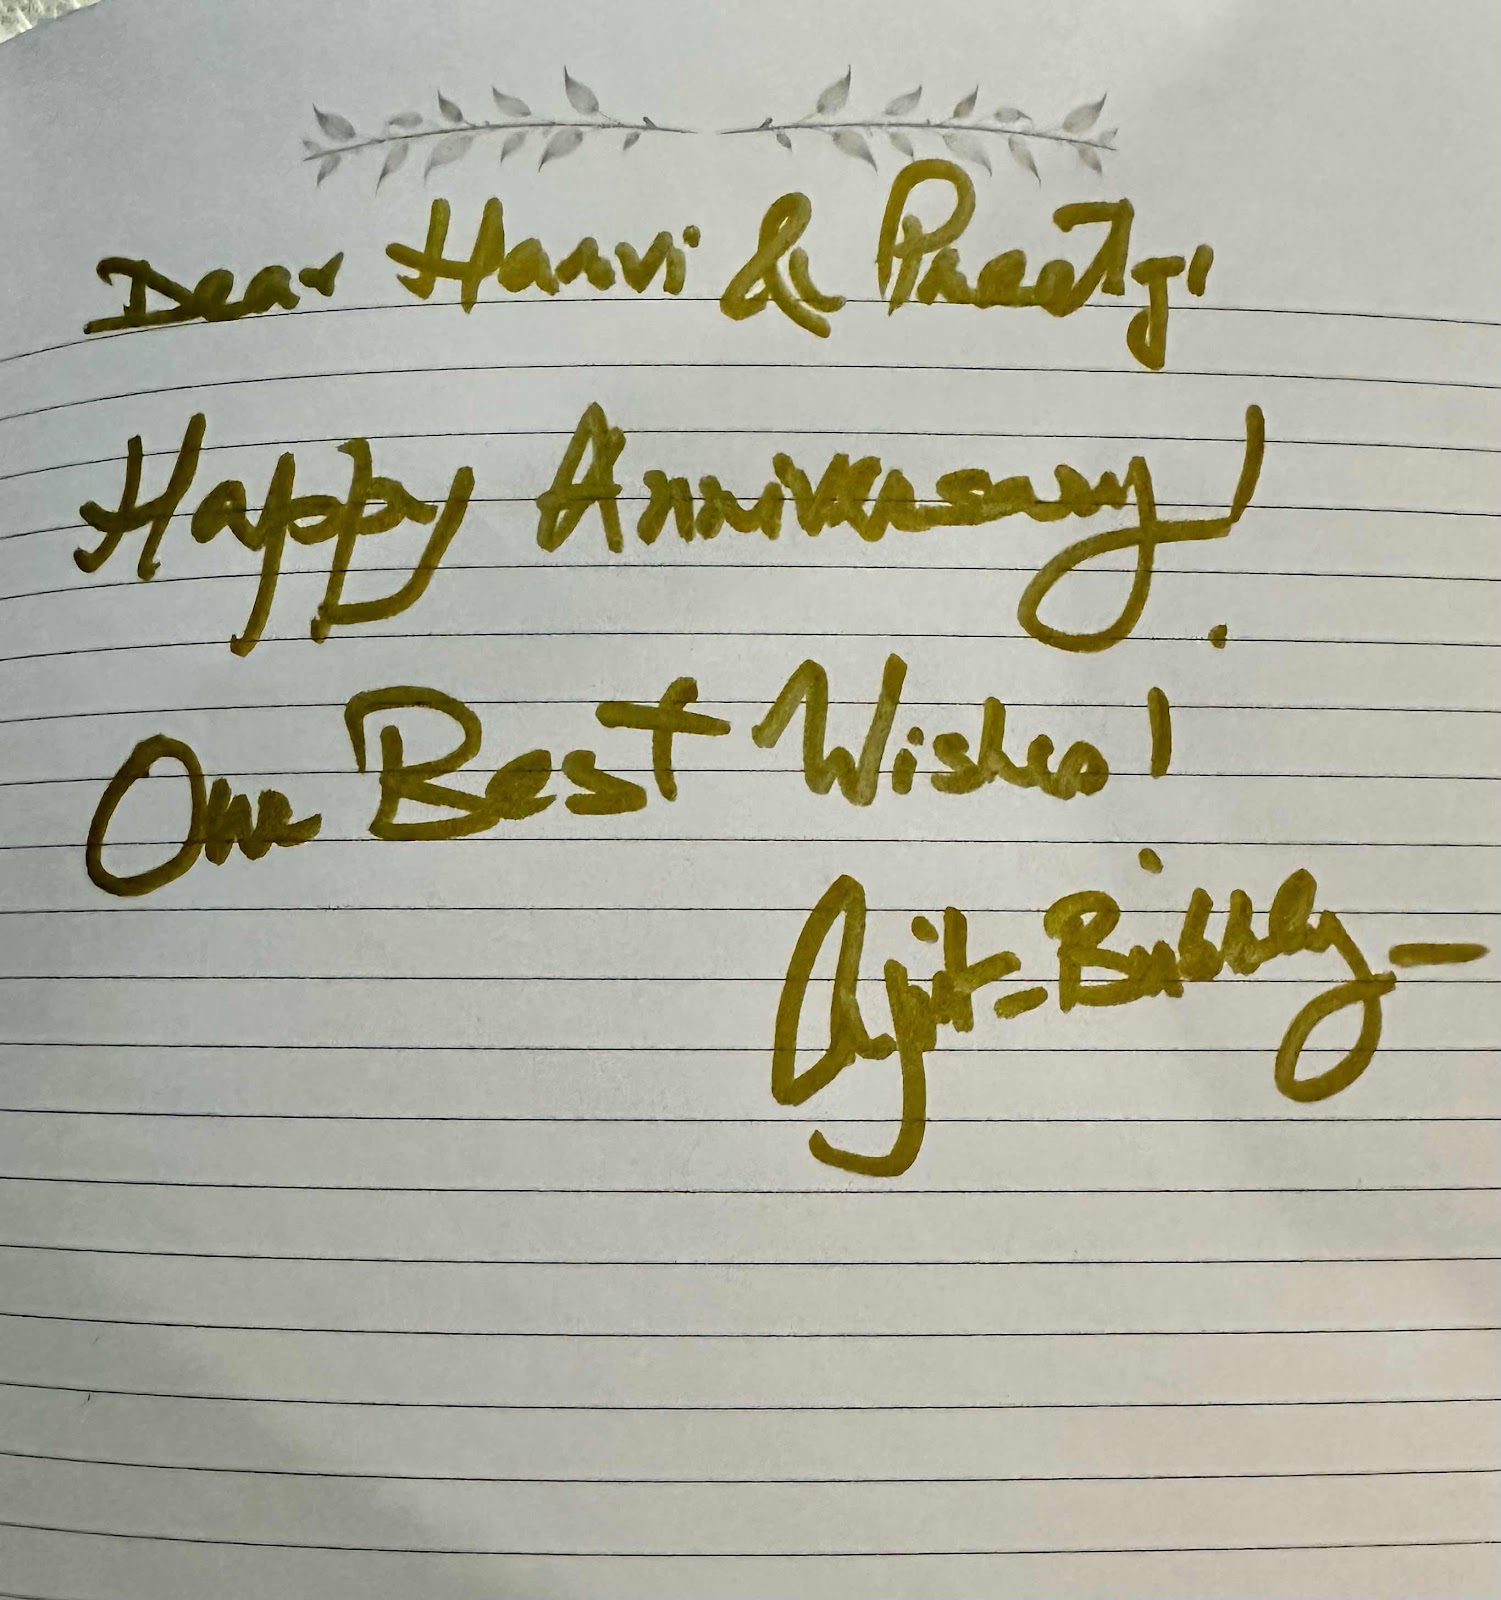 Dear Harvi & Preetgi
Happy Anniversary!
Our Best Wishes!
Ajit-Bubbly-